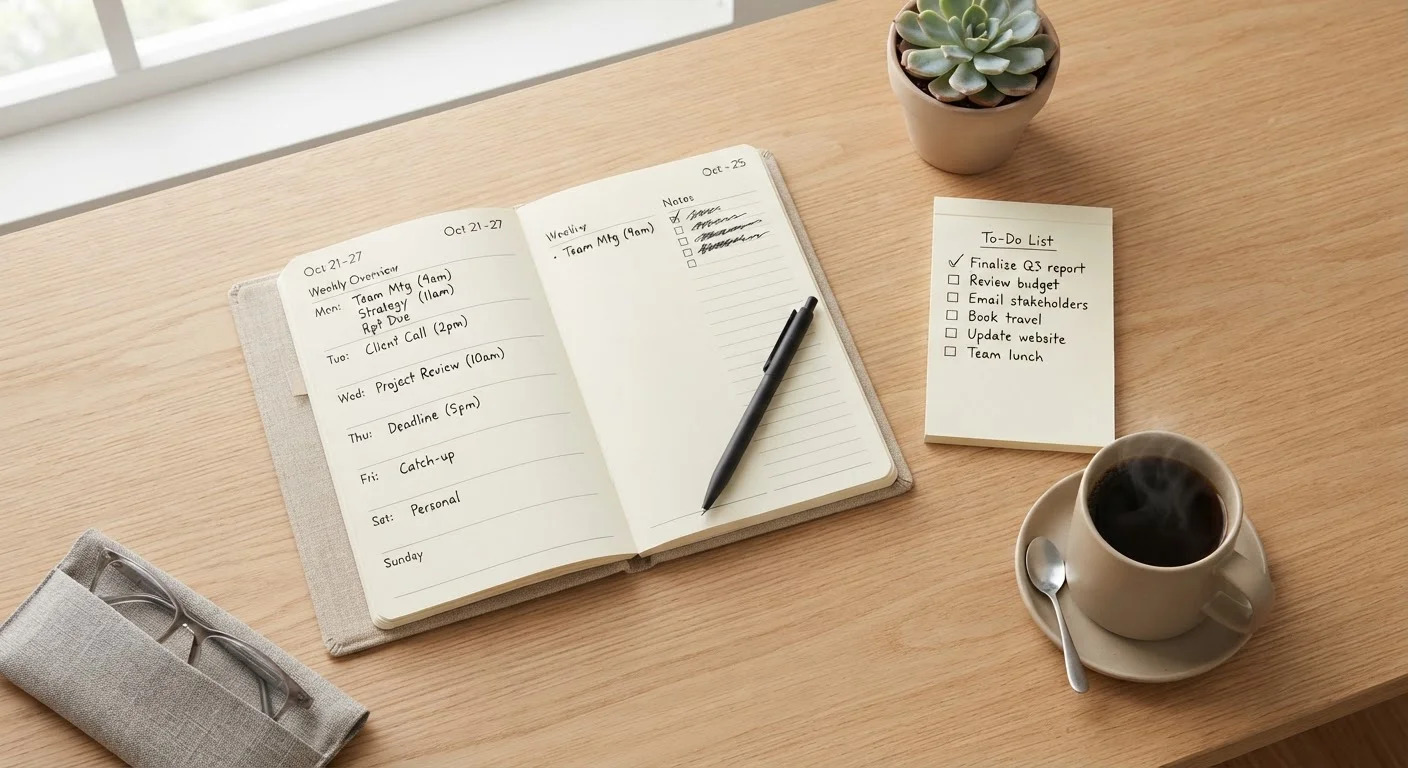 Oct 21-27
Oct 21-27
Weekly Overview
Mon: Team Mtg (9am)
Strategy (11am)
Rpt Due
Tuo: Client Call (2pm)
Wed: Project Review (10am)
Thu: Deadline (5pm)
Fri: Catch-up
Sat: Personal
Sunday
Oct -25
Notes
· Team Mtg (9am)
To-Do List
✓ Finalize Q3 report
☐ Review budget
☐ Email stakeholders
☐ Book travel
☐ Update website
☐ Team lunch